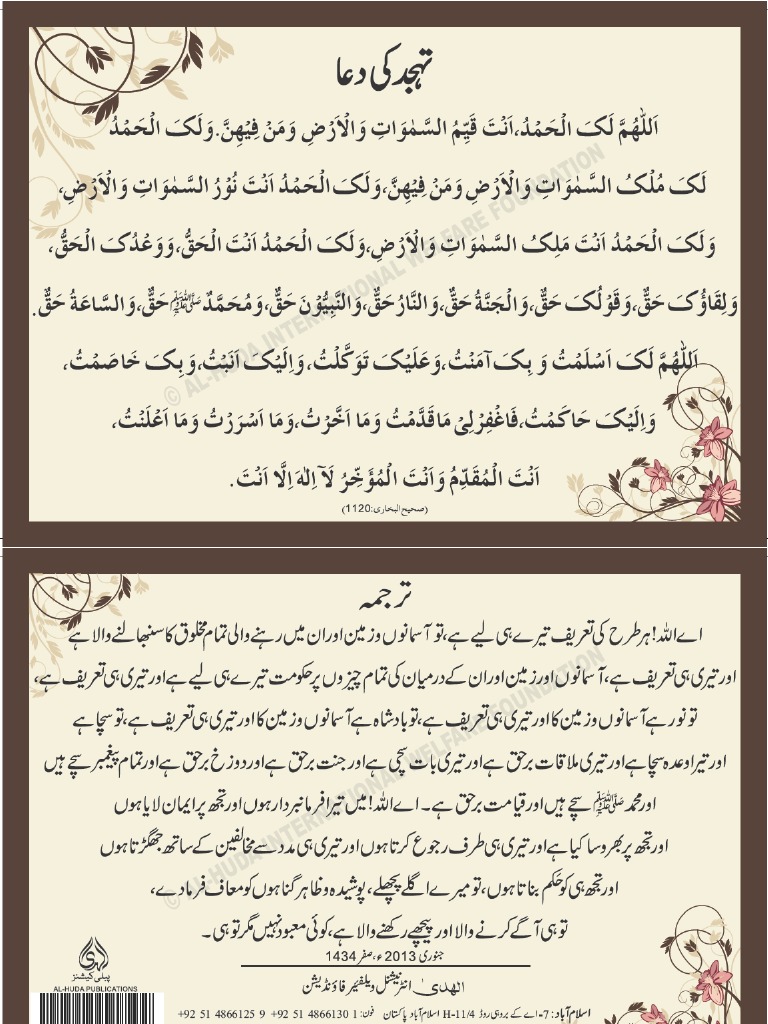 تہجد کی دعا
اَللّٰهُمَّ لَکَ الْحَمْدُ،اَنْتَ قَیِّمُ السَّمٰوَاتِ وَالْاَرْضِ وَمَنْ فِیْهِنَّ.وَلَکَ الْحَمْدُ
لَکَ مُلْکُ السَّمٰوَاتِ وَالْاَرْضِ وَمَنْ فِیْهِنَّ،وَلَکَ الْحَمْدُ اَنْتَ نُوْرُ السَّمٰوَاتِ وَالْاَرْضِ،
وَلَکَ الْحَمْدُ اَنْتَ مَلِکُ السَّمٰوَاتِ وَالْاَرْضِ،وَلَکَ الْحَمْدُ اَنْتَ الْحَقُّ،وَوَعْدُکَ الْحَقُّ،
وَلِقَاؤُکَ حَقٌّ،وَقَوْلُکَ حَقٌّ،وَالْجَنَّةُ حَقٌّ،وَالنَّارُ حَقٌّ،وَالنَّبِیُّوْنَ حَقٌّ،وَمُحَمَّدٌ ﷺ حَقٌّ،وَالسَّاعَةُ حَقٌّ.
اَللّٰهُمَّ لَکَ اَسْلَمْتُ وَ بِکَ آمَنْتُ،وَعَلَیْکَ تَوَکَّلْتُ،وَاِلَیْکَ اَنَبْتُ،وَبِکَ خَاصَمْتُ،
وَاِلَیْکَ حَاکَمْتُ،فَاغْفِرْلِیْ مَاقَدَّمْتُ وَمَا اَخَّرْتُ،وَمَا اَسْرَرْتُ وَمَا اَعْلَنْتُ،
اَنْتَ الْمُقَدِّمُ وَاَنْتَ الْمُؤَخِّرُ لَآ اِلٰهَ اِلَّا اَنْتَ.
(صحیح البخاری:1120)
© AL-HUDA INTERNATIONAL WELFARE FOUNDATION
ترجمہ
اے اللہ! ہر طرح کی تعریف تیرے ہی لیے ہے، تو آسمانوں وزمین اور ان میں رہنے والی تمام مخلوق کا سنبھالنے والا ہے
اور تیری ہی تعریف ہے، آسمانوں اور زمین اور ان کے درمیان کی تمام چیزوں پر حکومت تیرے ہی لیے ہے اور تیری ہی تعریف ہے،
تو نور ہے آسمانوں وزمین کا اور تیری ہی تعریف ہے، تو بادشاہ ہے آسمانوں وزمین کا اور تیری ہی تعریف ہے، تو سچا ہے
اور تیرا وعدہ سچا ہے اور تیری ملاقات برحق ہے اور تیری بات سچی ہے اور جنت برحق ہے اور دوزخ برحق ہے اور تمام پیغمبر سچے ہیں
اور محمد ﷺ سچے ہیں اور قیامت برحق ہے۔ اے اللہ! میں تیرا فرمانبردار ہوں اور تجھ پر ایمان لایا ہوں
اور تجھ پر بھروسا کیا ہے اور تیری ہی طرف رجوع کرتا ہوں اور تیری ہی مدد سے مخالفین کے ساتھ جھگڑتا ہوں
اور تجھ ہی کو حَکم بناتا ہوں، تو میرے اگلے پچھلے، پوشیدہ وظاہر گناہوں کو معاف فرما دے،
تو ہی آگے کرنے والا اور پیچھے رکھنے والا ہے، کوئی معبود نہیں مگر تو ہی۔
© AL-HUDA INTERNATIONAL WELFARE FOUNDATION
جنوری 2013ء، صفر 1434
الھدیٰ انٹرنیشنل ویلفیئر فاؤنڈیشن
الہدی
پبلی کیشنز
AL-HUDA PUBLICATIONS
اسلام آباد: 7-اے کے بروہی روڈ H-11/4 اسلام آباد پاکستان فون: +92 51 4866130 1 +92 51 4866125 9